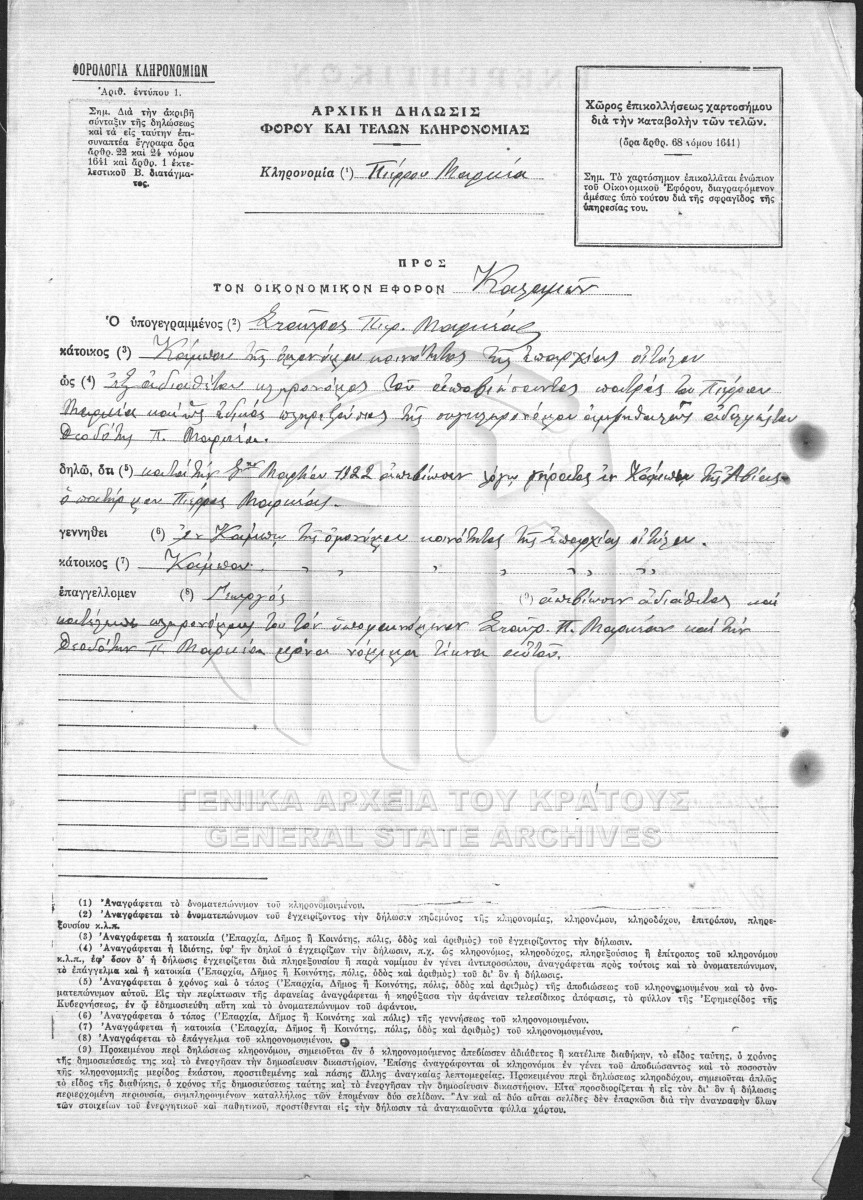 ΦΟΡΟΛΟΓΙΑ ΚΛΗΡΟΝΟΜΙΩΝ
Ἀριθ. ἐντύπου 1.
Σημ. Διὰ τὴν ἀκριβῆ
σύνταξιν τῆς δηλώσεως
καὶ τὰ εἰς ταύτην ἐπι-
συναπτέα ἔγγραφα ὅρα
ἄρθρ. 22 καὶ 24 νόμου
1641 καὶ ἄρθρ. 1 ἐκτε-
λεστικοῦ Β. διατάγμα-
τος.
ΑΡΧΙΚΗ ΔΗΛΩΣΙΣ
ΦΟΡΟΥ ΚΑΙ ΤΕΛΩΝ ΚΛΗΡΟΝΟΜΙΑΣ
Κληρονομία (¹) Πιέρρου Μαρκέα
Χῶρος ἐπικολλήσεως χαρτοσήμου
διὰ τὴν καταβολὴν τῶν τελῶν.
(ὅρα ἄρθρ. 68 νόμου 1641)
Σημ. Τὸ χαρτόσημον ἐπικολλᾶται ἐνώπιον
τοῦ Οἰκονομικοῦ Ἐφόρου, διαγραφόμενον
ἀμέσως ὑπὸ τούτου διὰ τῆς σφραγῖδος τῆς
ὑπηρεσίας του.
ΠΡΟΣ
ΤΟΝ ΟΙΚΟΝΟΜΙΚΟΝ ΕΦΟΡΟΝ Καλαμῶν
Ὁ ὑπογεγραμμένος (2) Σταῦρος Πιερ. Μαρκέας
κάτοικος (3) Κάμπου τῆς ὁμωνύμου κοινότητος τῆς Ἐπαρχίας Οἰτύλου
ὡς (4) ἐξ ἀδιαθέτου κληρονόμος τοῦ ἀποβιώσαντος πατρός του Πιέρρου
Μαρκέα καὶ ὡς εἰδικὸς πληρεξούσιος τῆς συγκληρονόμου ἀδελφῆς του
Θεοδότης Π. Μαρκέα.
δηλῶ, ὅτι (5) κατὰ τὴν Μαρτίου 1922 ἀπεβίωσεν λόγῳ γήρατος ἐν Κάμπῳ τῆς Ἀβίας
ὁ πατήρ μου Πιέρρος Μαρκέας.
γεννηθεὶ (6) ἐν Κάμπῳ τῆς ὁμωνύμου κοινότητος τῆς Ἐπαρχίας Οἰτύλου.
κάτοικος (7) Κάμπου. " " " " " "
ἐπαγγελλομεν (8) Γεωργός (9) ἀπεβίωσεν ἀδιάθετος καὶ
κατέλιπε κληρονόμους του τὸν ὑποφαινόμενον Σταῦρ. Π. Μαρκέαν καὶ τὴν
Θεοδότην Π. Μαρκέα μόνα νόμιμα τέκνα αὐτοῦ.
ΓΕΝΙΚΑ ΑΡΧΕΙΑ ΤΟΥ ΚΡΑΤΟΥΣ
GENERAL STATE ARCHIVES
(1) Ἀναγράφεται τὸ ὀνοματεπώνυμον τοῦ κληρονομουμένου.
(2) Ἀναγράφεται τὸ ὀνοματεπώνυμον τοῦ ἐγχειρίζοντος τὴν δήλωσιν κηδεμόνος τῆς κληρονομίας, κληρονόμου, κληροδόχου, ἐπιτρόπου, πληρε-
ξουσίου κ.λ.π.
(3) Ἀναγράφεται ἡ κατοικία (Ἐπαρχία, Δῆμος ἢ Κοινότης, πόλις, ὁδὸς καὶ ἀριθμὸς) τοῦ ἐγχειρίζοντος τὴν δήλωσιν.
(4) Ἀναγράφεται ἡ ἰδιότης, ὑφ' ἣν δηλοῖ ὁ ἐγχειρίζων τὴν δήλωσιν, π.χ. ὡς κληρονόμος, κληροδόχος, πληρεξούσιος ἢ ἐπίτροπος τοῦ κληρονόμου
κ.λ.π., ἐφ' ὅσον δ' ἡ δήλωσις ἐγχειρίζεται διὰ πληρεξουσίου ἢ παρὰ νομίμου ἐν γένει ἀντιπροσώπου, ἀναγράφεται πρὸς τούτοις καὶ τὸ ὀνοματεπώνυμον,
τὸ ἐπάγγελμα καὶ ἡ κατοικία (Ἐπαρχία, Δῆμος ἢ Κοινότης, πόλις, ὁδὸς καὶ ἀριθμὸς) τοῦ δι' ὃν ἡ δήλωσις.
(5) Ἀναγράφεται ὁ χρόνος καὶ ὁ τόπος (Ἐπαρχία, Δῆμος ἢ Κοινότης, πόλις, ὁδὸς καὶ ἀριθμὸς) τῆς ἀποβιώσεως τοῦ κληρονομουμένου καὶ τὸ ὀνο-
ματεπώνυμον αὐτοῦ. Εἰς τὴν περίπτωσιν τῆς ἀφανείας ἀναγράφεται ἡ κηρύξασα τὴν ἀφάνειαν τελεσίδικος ἀπόφασις, τὸ φύλλον τῆς Ἐφημερίδος τῆς
Κυβερνήσεως, ἐν ᾧ ἐδημοσιεύθη αὕτη καὶ τὸ ὀνοματεπώνυμον τοῦ ἀφάντου.
(6) Ἀναγράφεται ὁ τόπος (Ἐπαρχία, Δῆμος ἢ Κοινότης καὶ πόλις) τῆς γεννήσεως τοῦ κληρονομουμένου.
(7) Ἀναγράφεται ἡ κατοικία (Ἐπαρχία, Δῆμος ἢ Κοινότης, πόλις, ὁδὸς καὶ ἀριθμὸς) τοῦ κληρονομουμένου.
(8) Ἀναγράφεται τὸ ἐπάγγελμα τοῦ κληρονομουμένου.
(9) Προκειμένου περὶ δηλώσεως κληρονόμου, σημειοῦται ἂν ὁ κληρονομούμενος ἀπεβίωσεν ἀδιάθετος ἢ κατέλιπε διαθήκην, τὸ εἶδος ταύτης, ὁ χρόνος
τῆς δημοσιεύσεώς της καὶ τὸ ἐνεργῆσαν τὴν δημοσίευσιν δικαστήριον. Ἐπίσης ἀναγράφονται οἱ κληρονόμοι ἐν γένει τοῦ ἀποβιώσαντος καὶ τὸ ποσοστὸν
τῆς κληρονομικῆς μερίδος ἑκάστου, προστιθεμένης καὶ πάσης ἄλλης ἀναγκαίας λεπτομερείας. Προκειμένου περὶ δηλώσεως κληροδόχου, σημειοῦται ἁπλῶς
τὸ εἶδος τῆς διαθήκης, ὁ χρόνος τῆς δημοσιεύσεως ταύτης καὶ τὸ ἐνεργῆσαν τὴν δημοσίευσιν δικαστήριον. Εἶτα προσδιορίζεται ἡ εἰς τὸν δι' ὃν ἡ δήλωσις
περιερχομένη περιουσία, συμπληρουμένων καταλλήλως τῶν ἑπομένων δύο σελίδων. Ἂν καὶ αἱ δύο αὗται σελίδες δὲν ἐπαρκῶσι διὰ τὴν ἀναγραφὴν ὅλων
τῶν στοιχείων τοῦ ἐνεργητικοῦ καὶ παθητικοῦ, προστίθενται εἰς τὴν δήλωσιν τὰ ἀναγκαιοῦντα φύλλα χάρτου.